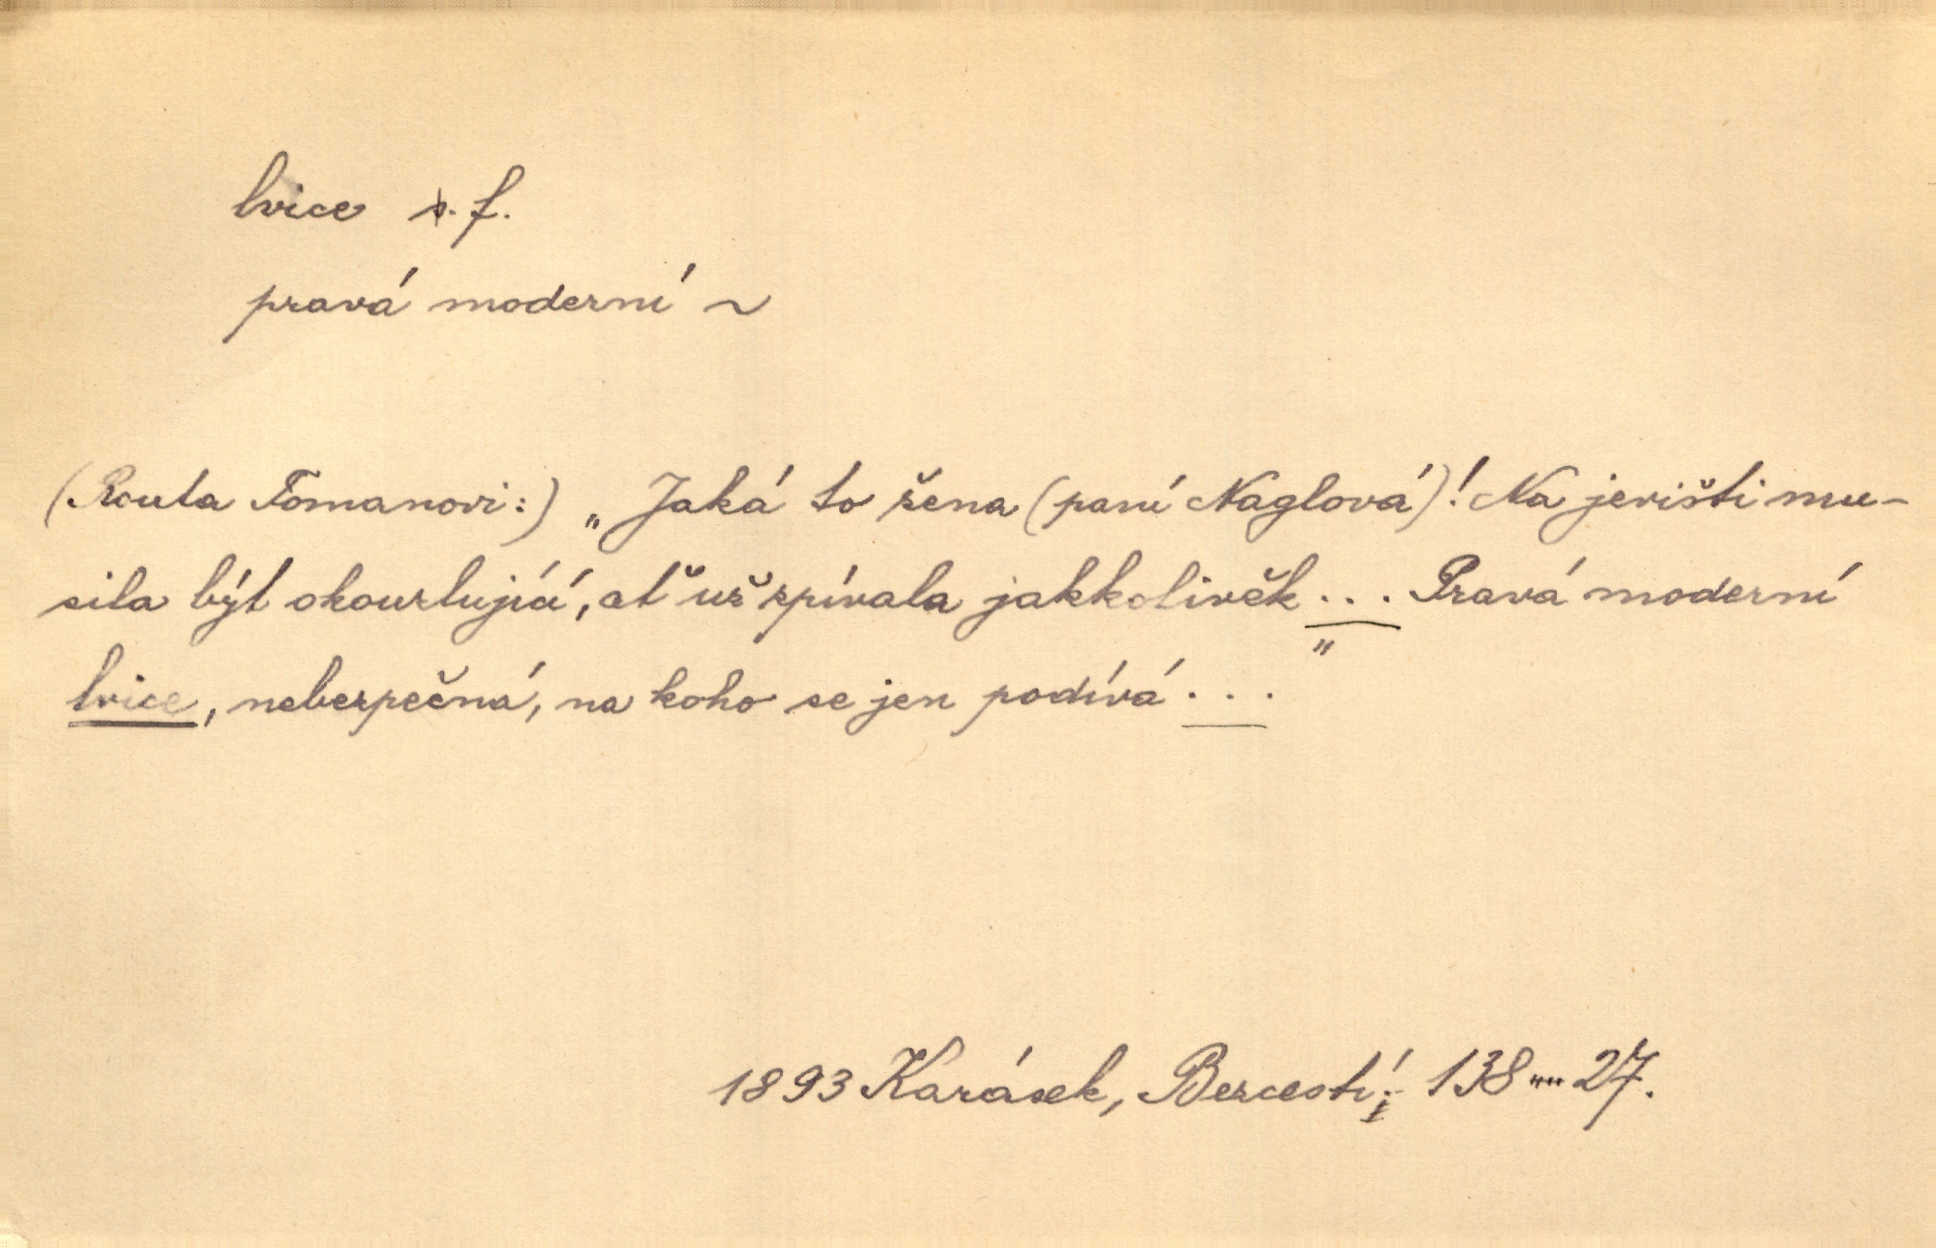 lvice s. f.
pravá moderní ~
(Routa Tomanovi:) „Jaká to žena (paní Naglová)! Na jevišti mu-
sila být okouzlující, ať už zpívala jakkolivěk ... Pravá moderní
"
lvice, nebezpečná, na koho se jen podívá ...
1893 Karásek, Bezcestí; 138 "" 27.